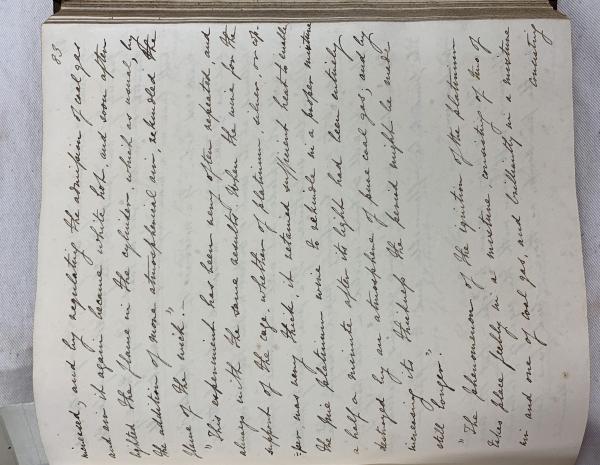 83
increased, and by regulating the admission of coal gas
and air it again became white hot, and soon after
lighted the flame in the cylinder, which as usual, by
the addition of more atmospherical air, rekindled the
flame of the wick."—
"This experiment has been very often repeated and
always with the same results. When the wire for the
support of the cage, whether of platinum, silver, or cop-
-per, was very thick, it retained sufficient heat to enable
the fine platinum wire to rekindle in a proper mixture
a half a minute after its light had been entirely
destroyed by an atmosphere of pure coal gas; and by
increasing its thickness the period might be made
still longer."
"The phenomenon of the ignition of the platinum
takes place feebly in a mixture consisting of two of
air and one of coal gas, and brilliantly in a mixture
consisting